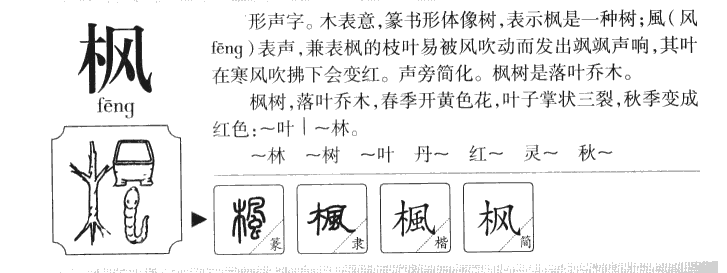 枫
fēng
形声字。木表意,篆书形体像树,表示枫是一种树;風(风
fēng)表声,兼表枫的枝叶易被风吹动而发出飒飒声响,其叶
在寒风吹拂下会变红。声旁简化。枫树是落叶乔木。
枫树,落叶乔木,春季开黄色花,叶子掌状三裂,秋季变成
红色:～叶│～林。
～林 ～树 ～叶 丹～ 红～ 灵～ 秋～
楓 篆 楓 隶 楓 楷 枫 简